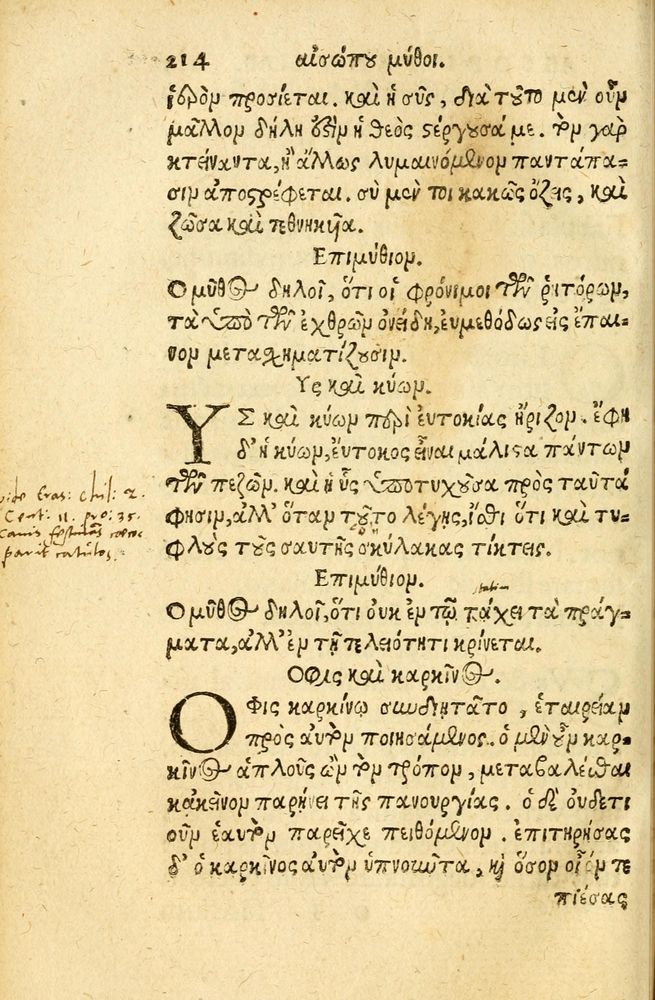 214 αἰσώπου μύθοι.
ἱερὸν προσίεται. καὶ ἡ σῦς, διὰ τοῦτο μὲν οὖν
μᾶλλον δήλη ἐστὶν ἡ θεὸς στέργουσά με. τὸν γὰρ
κτείναντα, ἢ ἄλλως λυμαινόμενον παντάπα-
σιν ἀποστρέφεται. σὺ μέν τοι κακῶς ὄζεις, καὶ
ζῶσα καὶ τεθνηκῖα.
Επιμύθιον.
Ο μῦθος δηλοῖ, ὅτι οἱ φρόνιμοι τῶν ῥητόρων,
τὰ ὑπὸ τῶν ἐχθρῶν ὀνείδη, ευμεθόδως εἰς ἔπαι-
νον μετασχηματίζουσιν.
Υς καὶ κύων.
ΥΣ καὶ κύων περὶ ἐυτοκίας ἤριζον. ἔφη
δ' ἡ κύων, ἔυτοκος εἶναι μάλιστα πάντων
τῶν πεζῶν. καὶ ἡ ὗς ὑποτυχοῦσα πρὸς ταῦτά
φησιν, ἀλλ' ὅταν τοῦτο λέγης, ἴσθι ὅτι καὶ τυ-
φλοὺς τοὺς σαυτῆς σκύλακας τίκτεις.
vide Eras: chil: 2.
Cent: 11. pro: 35.
Canis festinans caecos
parit catulos.
Επιμύθιον.
statim
Ο μῦθος δηλοῖ, ὅτι ουκ ἐν τῷ τάχει τὰ πράγ-
ματα, ἀλλ' ἐν τῇ τελειότητι κρίνεται.
Οφις καὶ καρκῖνος.
ΟΦις καρκίνῳ συνδιῃτᾶτο, ἑταιρείαν
πρὸς ἀυτὸν ποιησάμενος. ὁ μὲν οὖν καρ-
κῖνος ἁπλοῦς ὢν τὸν τρόπον, μεταβαλέσθαι
κἀκεῖνον παρῄνει τῆς πανουργίας. ὁ δὲ ὀυδετι
οῦν ἑαυτὸν παρεῖχε πειθόμενον. ἐπιτηρήσας
δ' ὁ καρκῖνος ἀυτὸν ὑπνοῦντα, καὶ ὅσον οἷόν τε
πιέσας